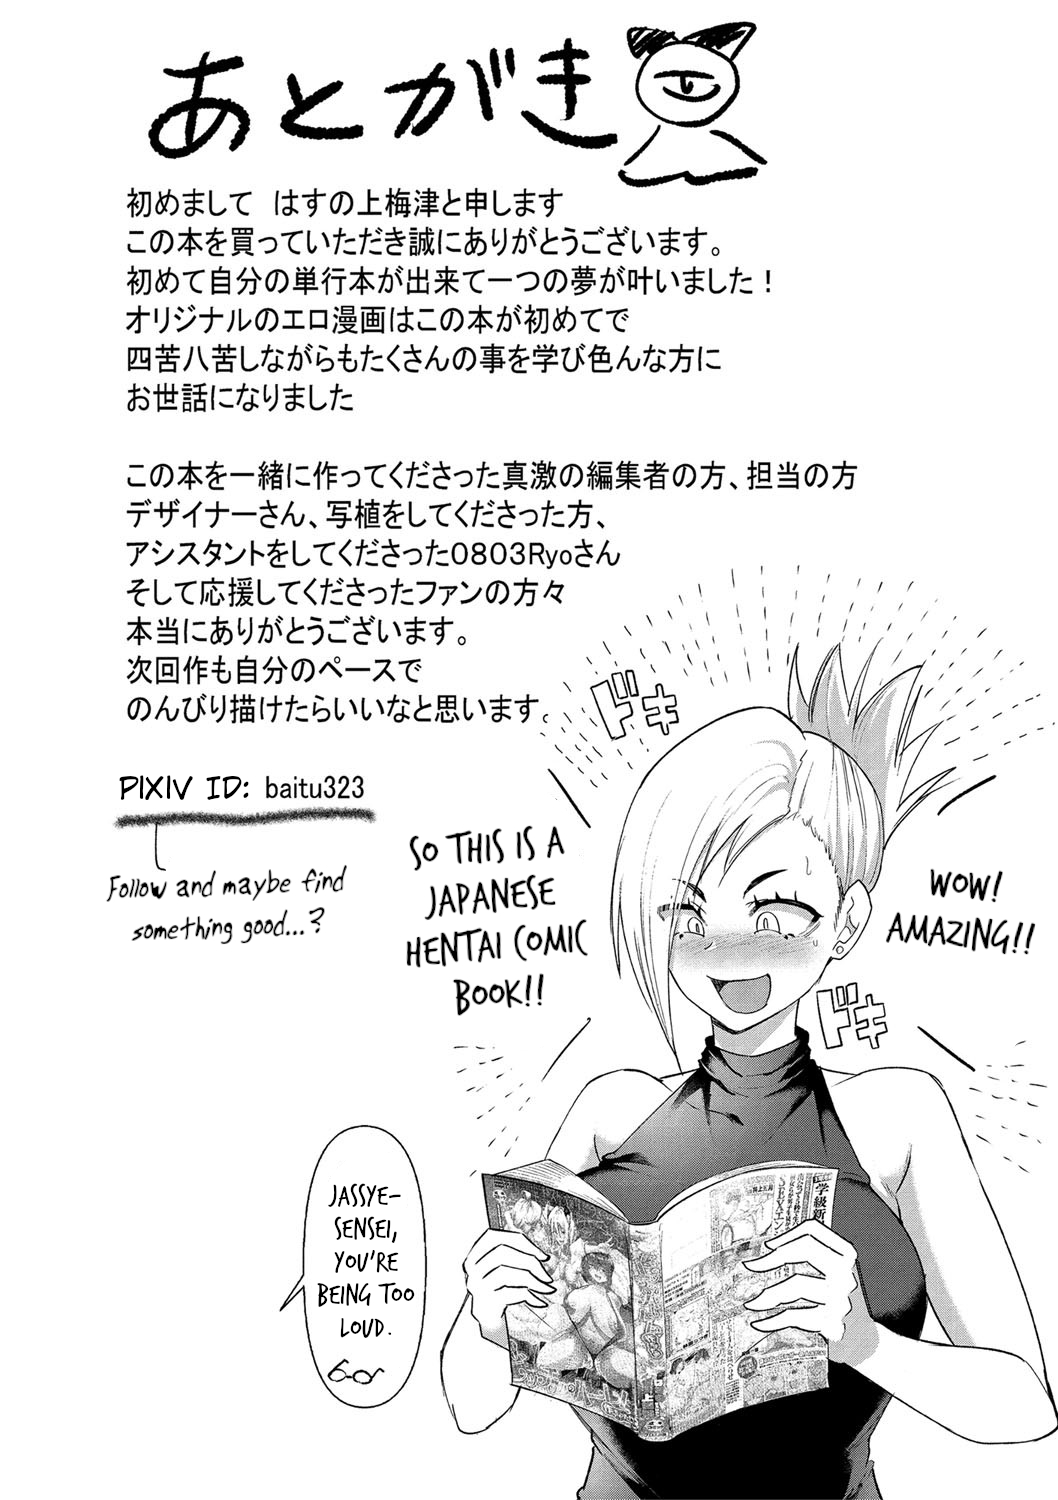 あとがき
初めまして　はすの上梅津と申します
この本を買っていただき誠にありがとうございます。
初めて自分の単行本が出来て一つの夢が叶いました！
オリジナルのエロ漫画はこの本が初めてで
四苦八苦しながらもたくさんの事を学び色んな方に
お世話になりました
この本を一緒に作ってくださった真激の編集者の方、担当の方
デザイナーさん、写植をしてくださった方、
アシスタントをしてくださった0803Ryoさん
そして応援してくださったファンの方々
本当にありがとうございます。
次回作も自分のペースで
のんびり描けたらいいなと思います。
PIXIV ID: baitu323
Follow and maybe find
something good...?
ドキ
SO THIS IS A
JAPANESE
HENTAI COMIC
BOOK!!
WOW!
AMAZING!!
ドキ
JASSYE-
SENSEI,
YOU'RE
BEING TOO
LOUD.
学級新
SEXエン